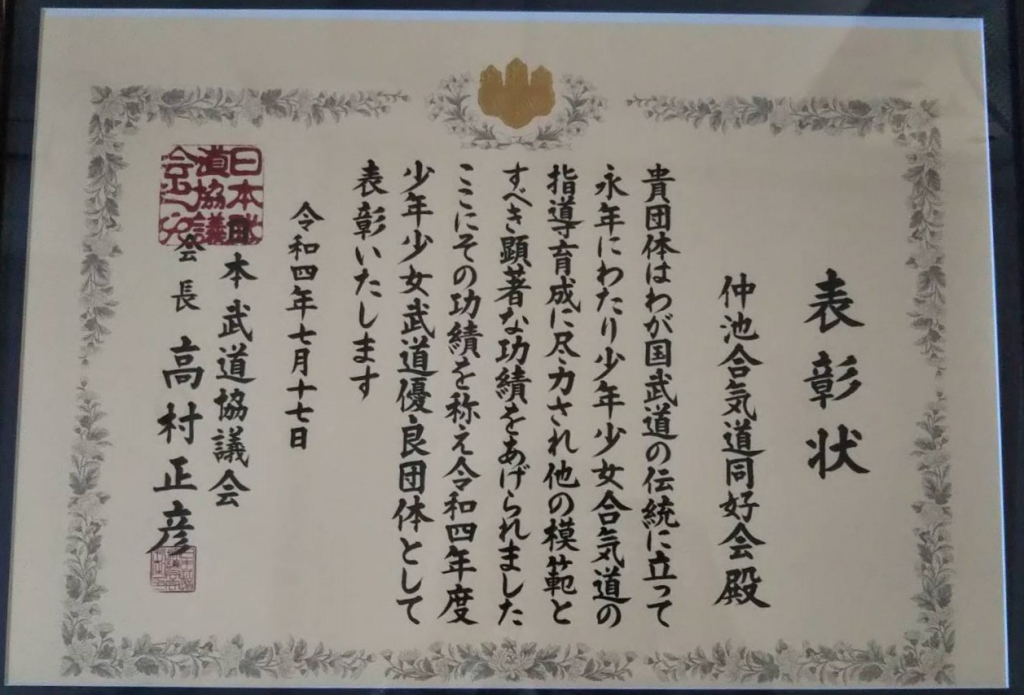 表彰状
仲池合気道同好会殿
貴団体はわが国武道の伝統に立って
永年にわたり少年少女合気道の
指導育成に尽力され他の模範と
すべき顕著な功績をあげられました
ここにその功績を称え令和四年度
少年少女武道優良団体として
表彰いたします
令和四年七月十七日
日本武道協議会
会長 高村正彦